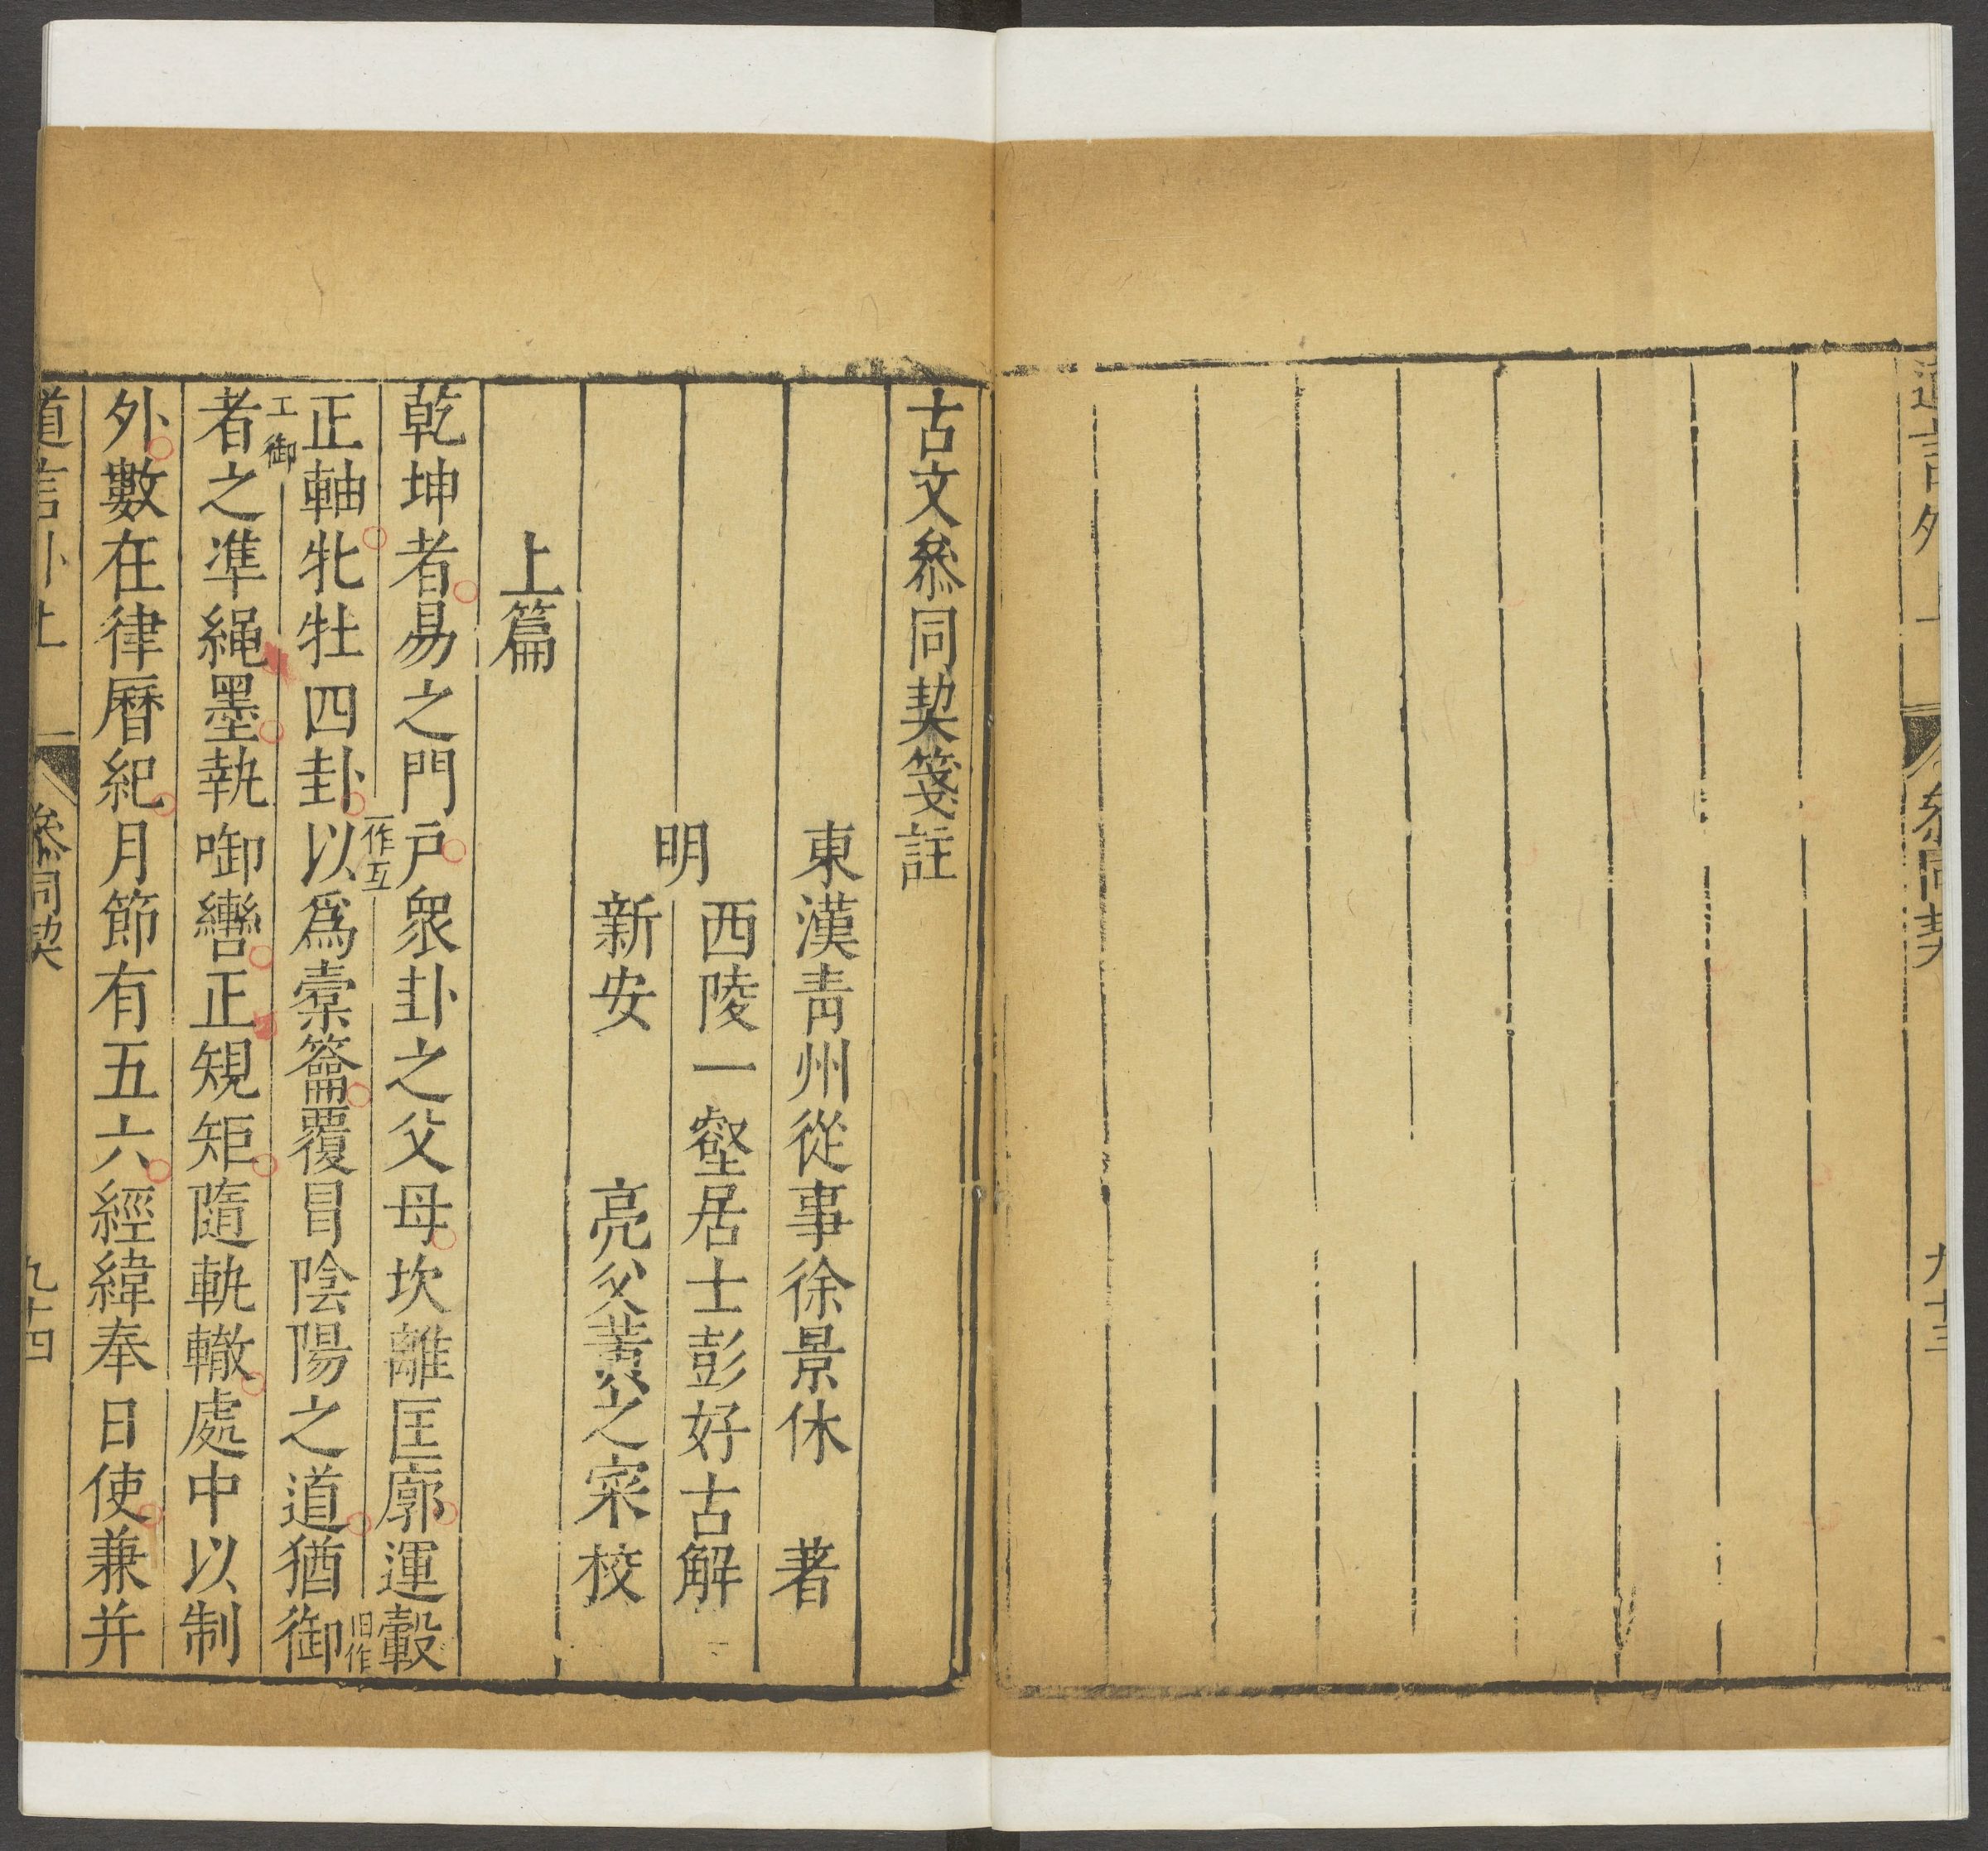 道言外上 叅同契 九十三
古文叅同契箋註
東漢青州從事徐景休 著
明
西陵一壑居士彭好古解
新安 亮父黃之寀校
上篇
乾坤者易之門戶衆卦之父母坎離匡廓運轂
一作互
旧作
正軸牝牡四卦以爲橐籥覆冒陰陽之道猶御
工御
者之凖繩墨執啣轡正規矩隨軌轍處中以制
外數在律曆紀月節有五六經緯奉日使兼并
道言外上 叅同契 九十四